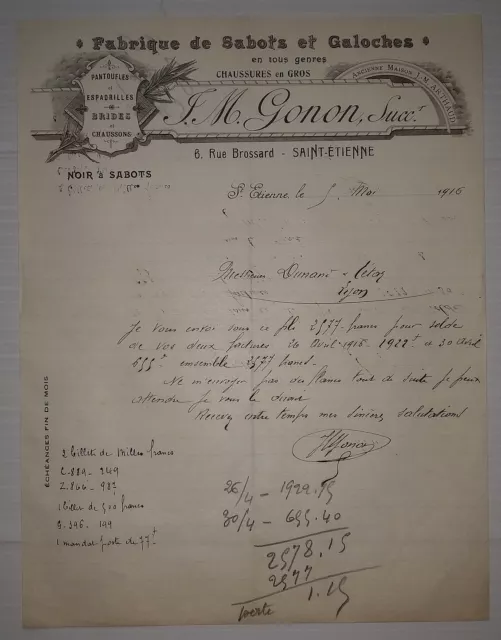 Fabrique de Sabots et Galoches
en tous genres
CHAUSSURES en GROS
PANTOUFLES
ESPADRILLES
BRIDES
et
CHAUSSONS
ANCIENNE MAISON J.M. ARTHAUD
J.M. Gonon, Succr.
6, Rue Brossard - SAINT-ETIENNE
NOIR à SABOTS
St Etienne, le 5 Mai 1916
Messieurs Dunand
Lyon
Je vous envoi sous ce pli 2577 francs pour solde
de vos deux factures 26 Avril 1916 - 1922 f et 30 avril
655 f ensemble 2577 francs.
Ne m'envoyer pas de blancs tout de suite je peux
attendre je vous le dirai
Recevez entre temps mes sincères salutations
JMGonon
ÉCHÉANCES FIN DE MOIS
2 billets de Milles francs
L.889 - 249
Z.866 - 987
1 billet de 500 francs
296 - 199
1 mandat poste de 77 f
26/4 - 1922.75
30/4 - 655.40
2578.15
2577
1.15
perte